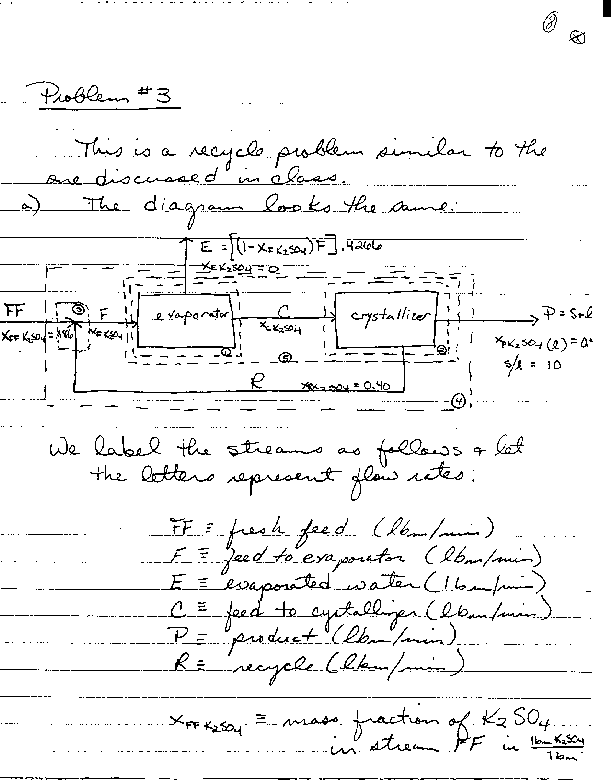 8
Problem #3
This is a recycle problem similar to the
one discussed in class.
a) The diagram looks the same:
E = [(1 - XF K2SO4)F] .4266
XE K2SO4 = 0
FF
XFF K2SO4 = .186
3
F
XF K2SO4
evaporator
1
C
XC K2SO4
5
crystallizer
2
P = S+l
XP K2SO4 (l) = 0.
s/l = 10
R
XR K2SO4 = 0.40
4
We label the streams as follows & let
the letters represent flow rates:
FF ≡ fresh feed (lbm/min)
F ≡ feed to evaporator (lbm/min)
E ≡ evaporated water (lbm/min)
C ≡ feed to cystallizer (lbm/min)
P ≡ product (lbm/min)
R ≡ recycle (lbm/min)
XFF K2SO4 ≡ mass fraction of K2SO4
in stream FF in lbm K2SO4
lbm